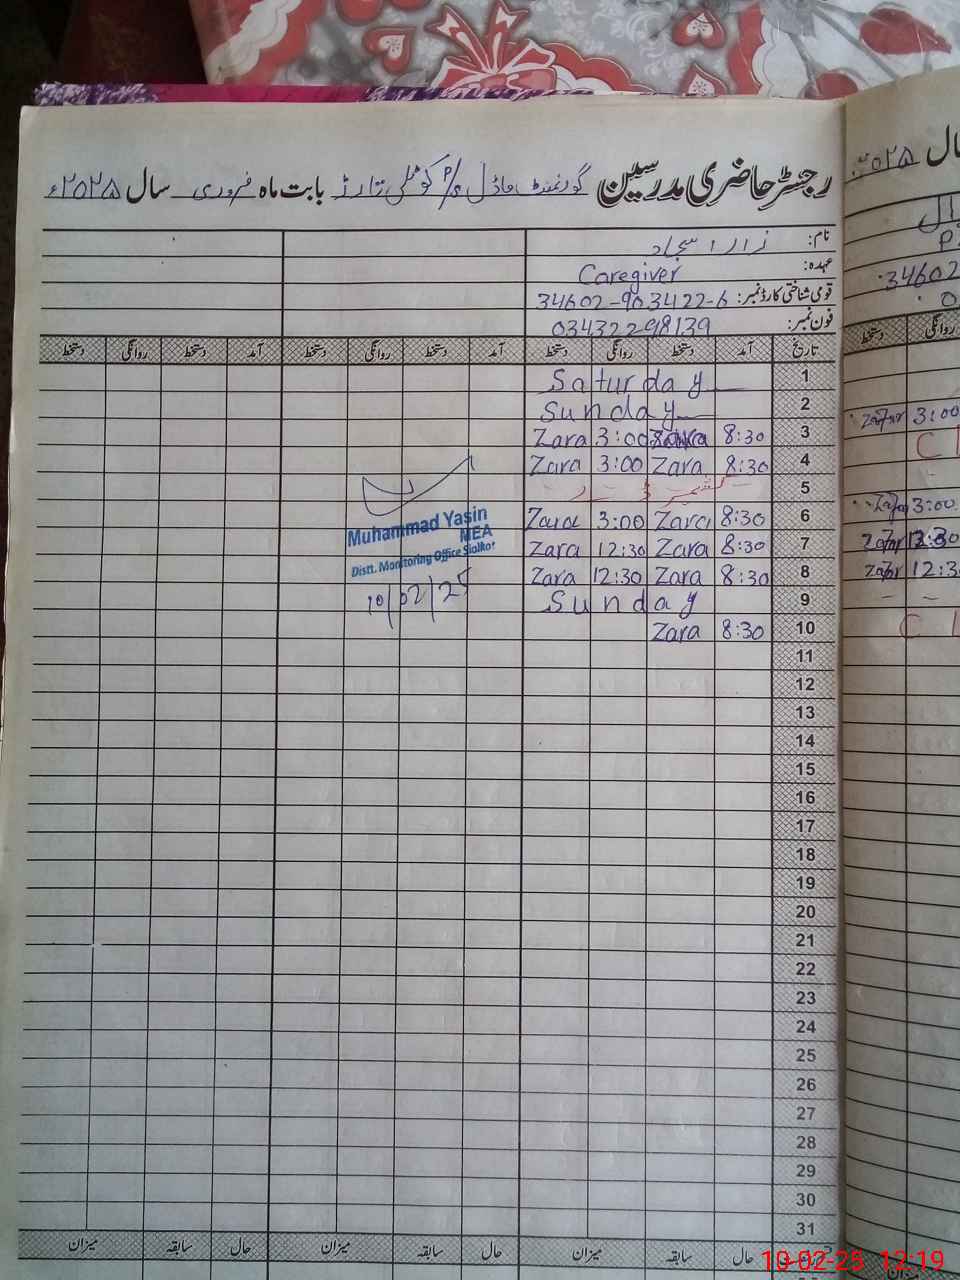 رجسٹر حاضری مدرسین گورنمنٹ ماڈل P/S کوٹلی تارڑ بابت ماہ فروری سال ۲۰۲۵ء
نام: زارا سجاد
عہدہ: Caregiver
قومی شناختی کارڈ نمبر: 34602-903422-6
فون نمبر: 03432298139
تاریخ آمد دستخط روانگی دستخط آمد دستخط روانگی دستخط آمد دستخط روانگی دستخط
1 Saturday
2 Sunday
3 8:30 Zara 3:00 Zara
4 8:30 Zara 3:00 Zara
5 کشمیر ڈے
6 8:30 Zara 3:00 Zara
7 8:30 Zara 12:30 Zara
8 8:30 Zara 12:30 Zara
9 Sunday
10 8:30 Zara
11
12
13
14
15
16
17
18
19
20
21
22
23
24
25
26
27
28
29
30
31
حال سابقہ میزان حال سابقہ میزان حال سابقہ میزان
Muhammad Yasin
MEA
Distt. Monitoring Office Sialkot
10/02/25
سال ۲۰۲۵
34602
دستخط روانگی
3:00
C
3:00
12:30
12:3
C L
10-02-25 12:19